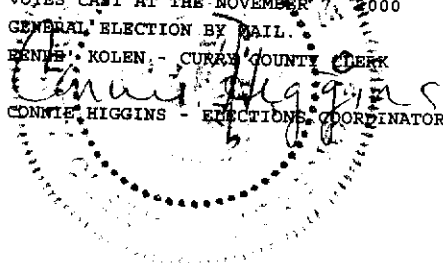 VOTES CAST AT THE NOVEMBER 7, 2000
GENERAL ELECTION BY MAIL.
KOLEN - CURRY COUNTY CLERK
Connie Higgins
CONNIE HIGGINS - ELECTIONS COORDINATOR